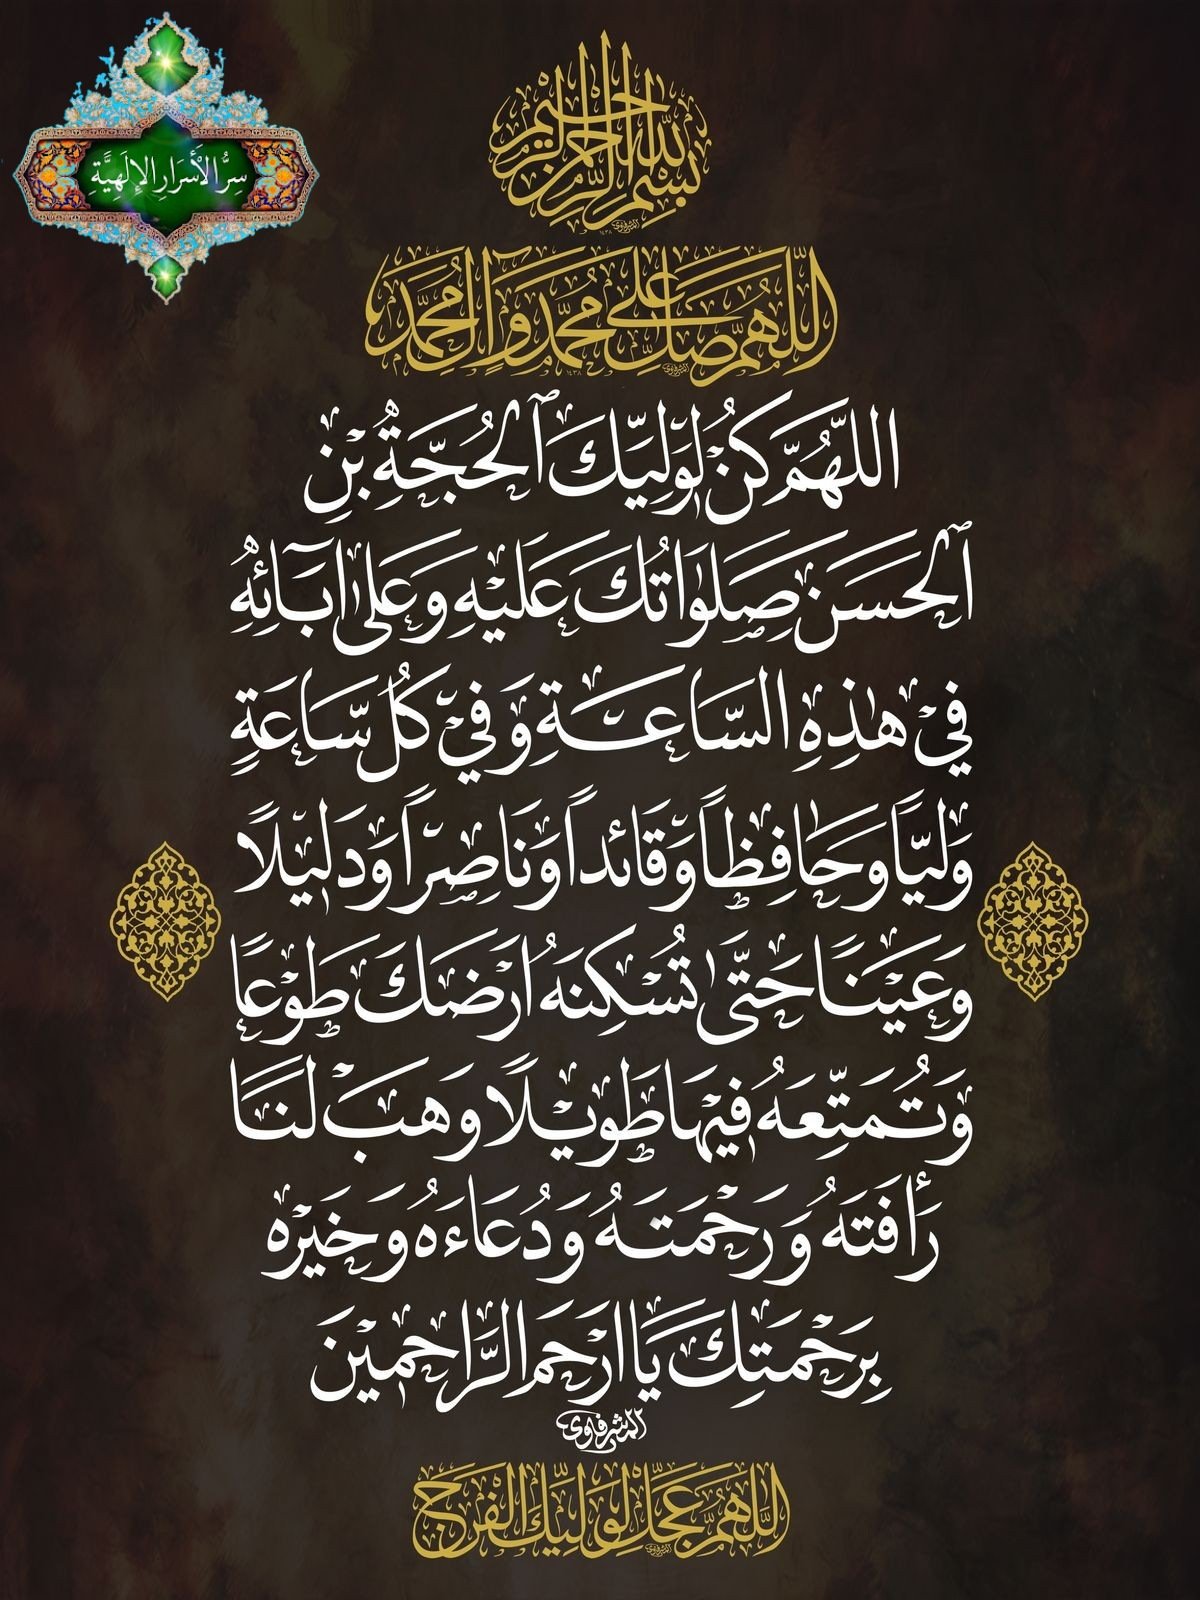 سِرُّ الأَسْرَارِ الإِلَهِيَّةِ
بِسْمِ اللهِ الرَّحْمنِ الرَّحِيمِ
اللَّهُمَّ صَلِّ عَلَى مُحَمَّدٍ وَآلِ مُحَمَّدٍ
اللَّهُمَّ كُنْ لِوَلِيِّكَ ٱلْحُجَّةِ بْنِ
ٱلْحَسَنِ صَلَوَاتُكَ عَلَيْهِ وَعَلَىٰ ابَآئِهِ
فِيْ هٰذِهِ السَّاعَةِ وَفِيْ كُلِّ سَاعَةٍ
وَلِيًّا وَحَافِظًا وَقَائِداً وَنَاصِرًا وَدَلِيْلًا
وَعَيْنًا حَتَّىٰ تُسْكِنَهُ ارْضَكَ طَوْعًا
وَتُمَتِّعَهُ فِيْهَا طَوِيْلًا وَهَبْ لَنَا
رَأْفَتَهُ وَرَحْمَتَهُ وَدُعَاءَهُ وَخَيْرَهُ
بِرَحْمَتِكَ يَا ارْحَمَ الرَّاحِمِيْنَ
المشرفاوي
اللَّهُمَّ عَجِّلْ لِوَلِيِّكَ الفَرَجَ